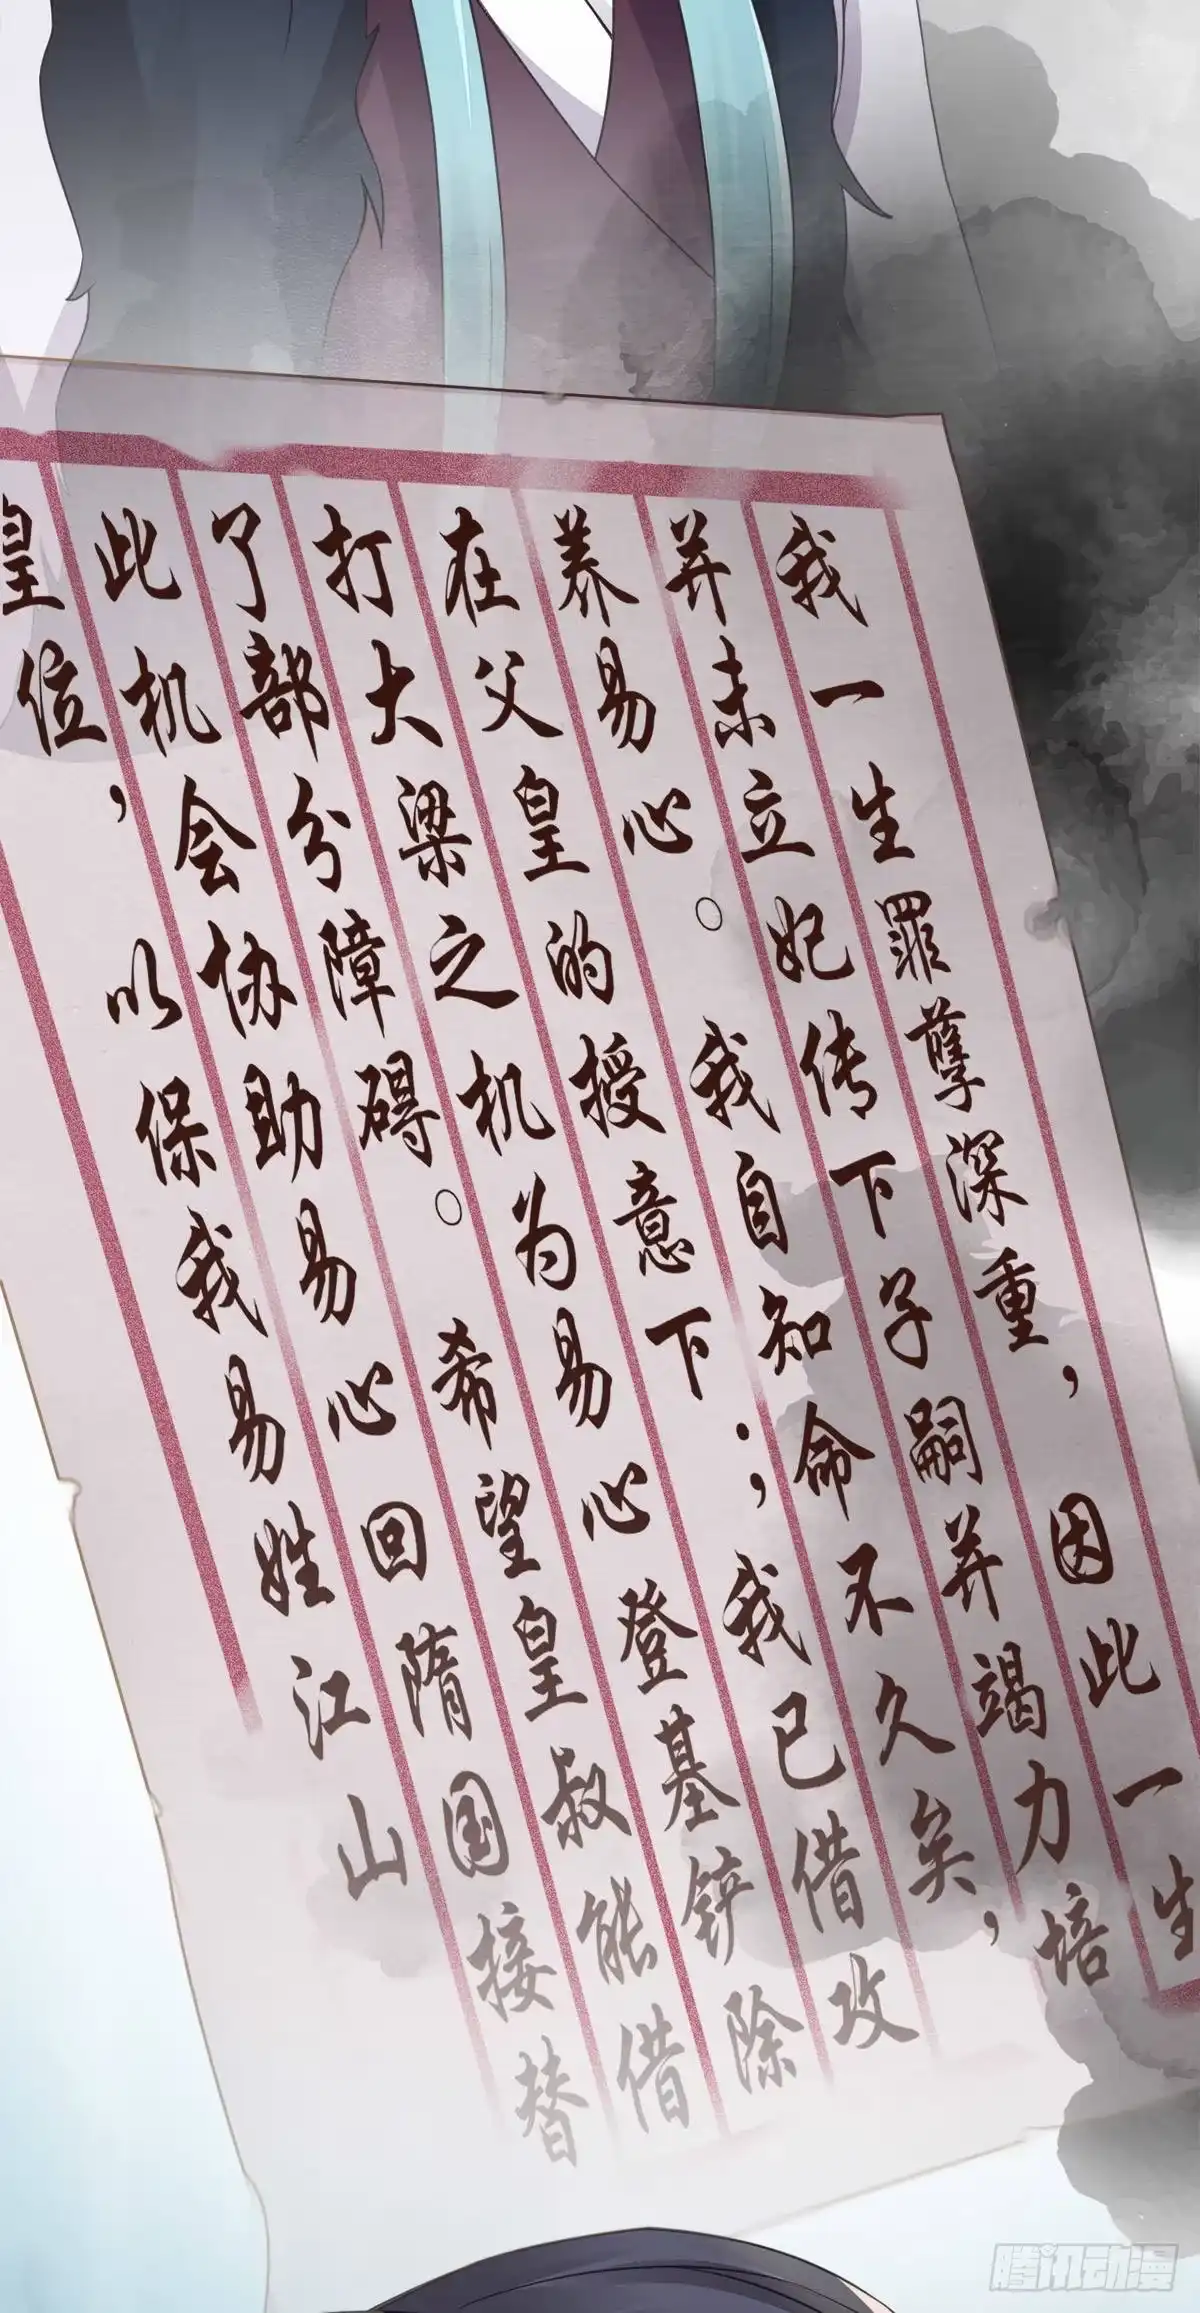 我一生罪孽深重，因此一生
并未立妃传下子嗣并竭力培
养易心。我自知命不久矣，
在父皇的授意下；我已借攻
打大梁之机为易心登基铲除
了部分障碍。希望皇叔能借
此机会协助易心回隋国接替
皇位，以保我易姓江山
腾讯动漫